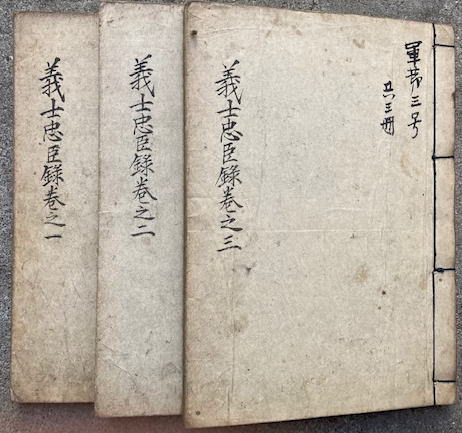 軍第三号
共三冊
義士忠臣録巻之三
義士忠臣録巻之二
義士忠臣録巻之一